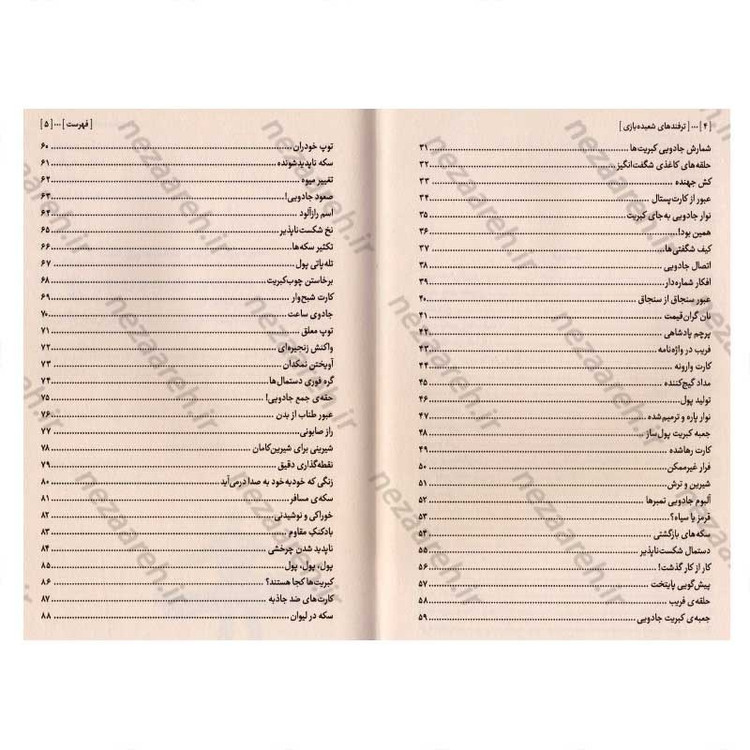 [ ۴ ] ... [ ترفندهای شعبده‌بازی ]
شمارش جادویی کبریت‌ها ۳۱
حلقه‌های کاغذی شگفت‌انگیز ۳۲
کش جهنده ۳۳
عبور از کارت‌پستال ۳۴
نوار جادویی به‌جای کبریت ۳۵
همین بود! ۳۶
کیف شگفتی‌ها ۳۷
اتصال جادویی ۳۸
افکار شماره‌دار ۳۹
عبور سنجاق از سنجاق ۴۰
نان گران‌قیمت ۴۱
پرچم پادشاهی ۴۲
فریب در واژه‌نامه ۴۳
کارت وارونه ۴۴
مداد گیج‌کننده ۴۵
تولید پول ۴۶
نوار پاره و ترمیم‌شده ۴۷
جعبه کبریت پول‌ساز ۴۸
کارت رهاشده ۴۹
فرار غیرممکن ۵۰
شیرین و ترش ۵۱
آلبوم جادویی تمبرها ۵۲
قرمز یا سیاه؟ ۵۳
سکه‌های بازگشتی ۵۴
دستمال شکست‌ناپذیر ۵۵
کار از کار گذشت! ۵۶
پیش‌گویی پایتخت ۵۷
حلقه‌ی فریب ۵۸
جعبه‌ی کبریت جادویی ۵۹
[ فهرست ] ... [ ۵ ]
توپ خودران ۶۰
سکه ناپدیدشونده ۶۱
تغییر میوه ۶۲
صعود جادویی! ۶۳
اسم رازآلود ۶۴
نخ شکست‌ناپذیر ۶۵
تکثیر سکه‌ها ۶۶
تله‌پاتی پول ۶۷
برخاستن چوب‌کبریت ۶۸
کارت شبح‌وار ۶۹
جادوی ساعت ۷۰
توپ معلق ۷۱
واکنش زنجیره‌ای ۷۲
آویختن نمکدان ۷۳
گره فوری دستمال‌ها ۷۴
حقه‌ی جمع جادویی! ۷۵
عبور طناب از بدن ۷۶
راز صابونی ۷۷
شیرینی برای شیرین‌کامان ۷۸
نقطه‌گذاری دقیق ۷۹
زنگی که خودبه‌خود به صدا درمی‌آید ۸۰
سکه‌ی مسافر ۸۱
خوراکی و نوشیدنی ۸۲
بادکنک مقاوم ۸۳
ناپدید شدن چرخشی ۸۴
پول، پول، پول ۸۵
کبریت‌ها کجا هستند؟ ۸۶
کارت‌های ضد جاذبه ۸۷
سکه در لیوان ۸۸
nezaareh.ir